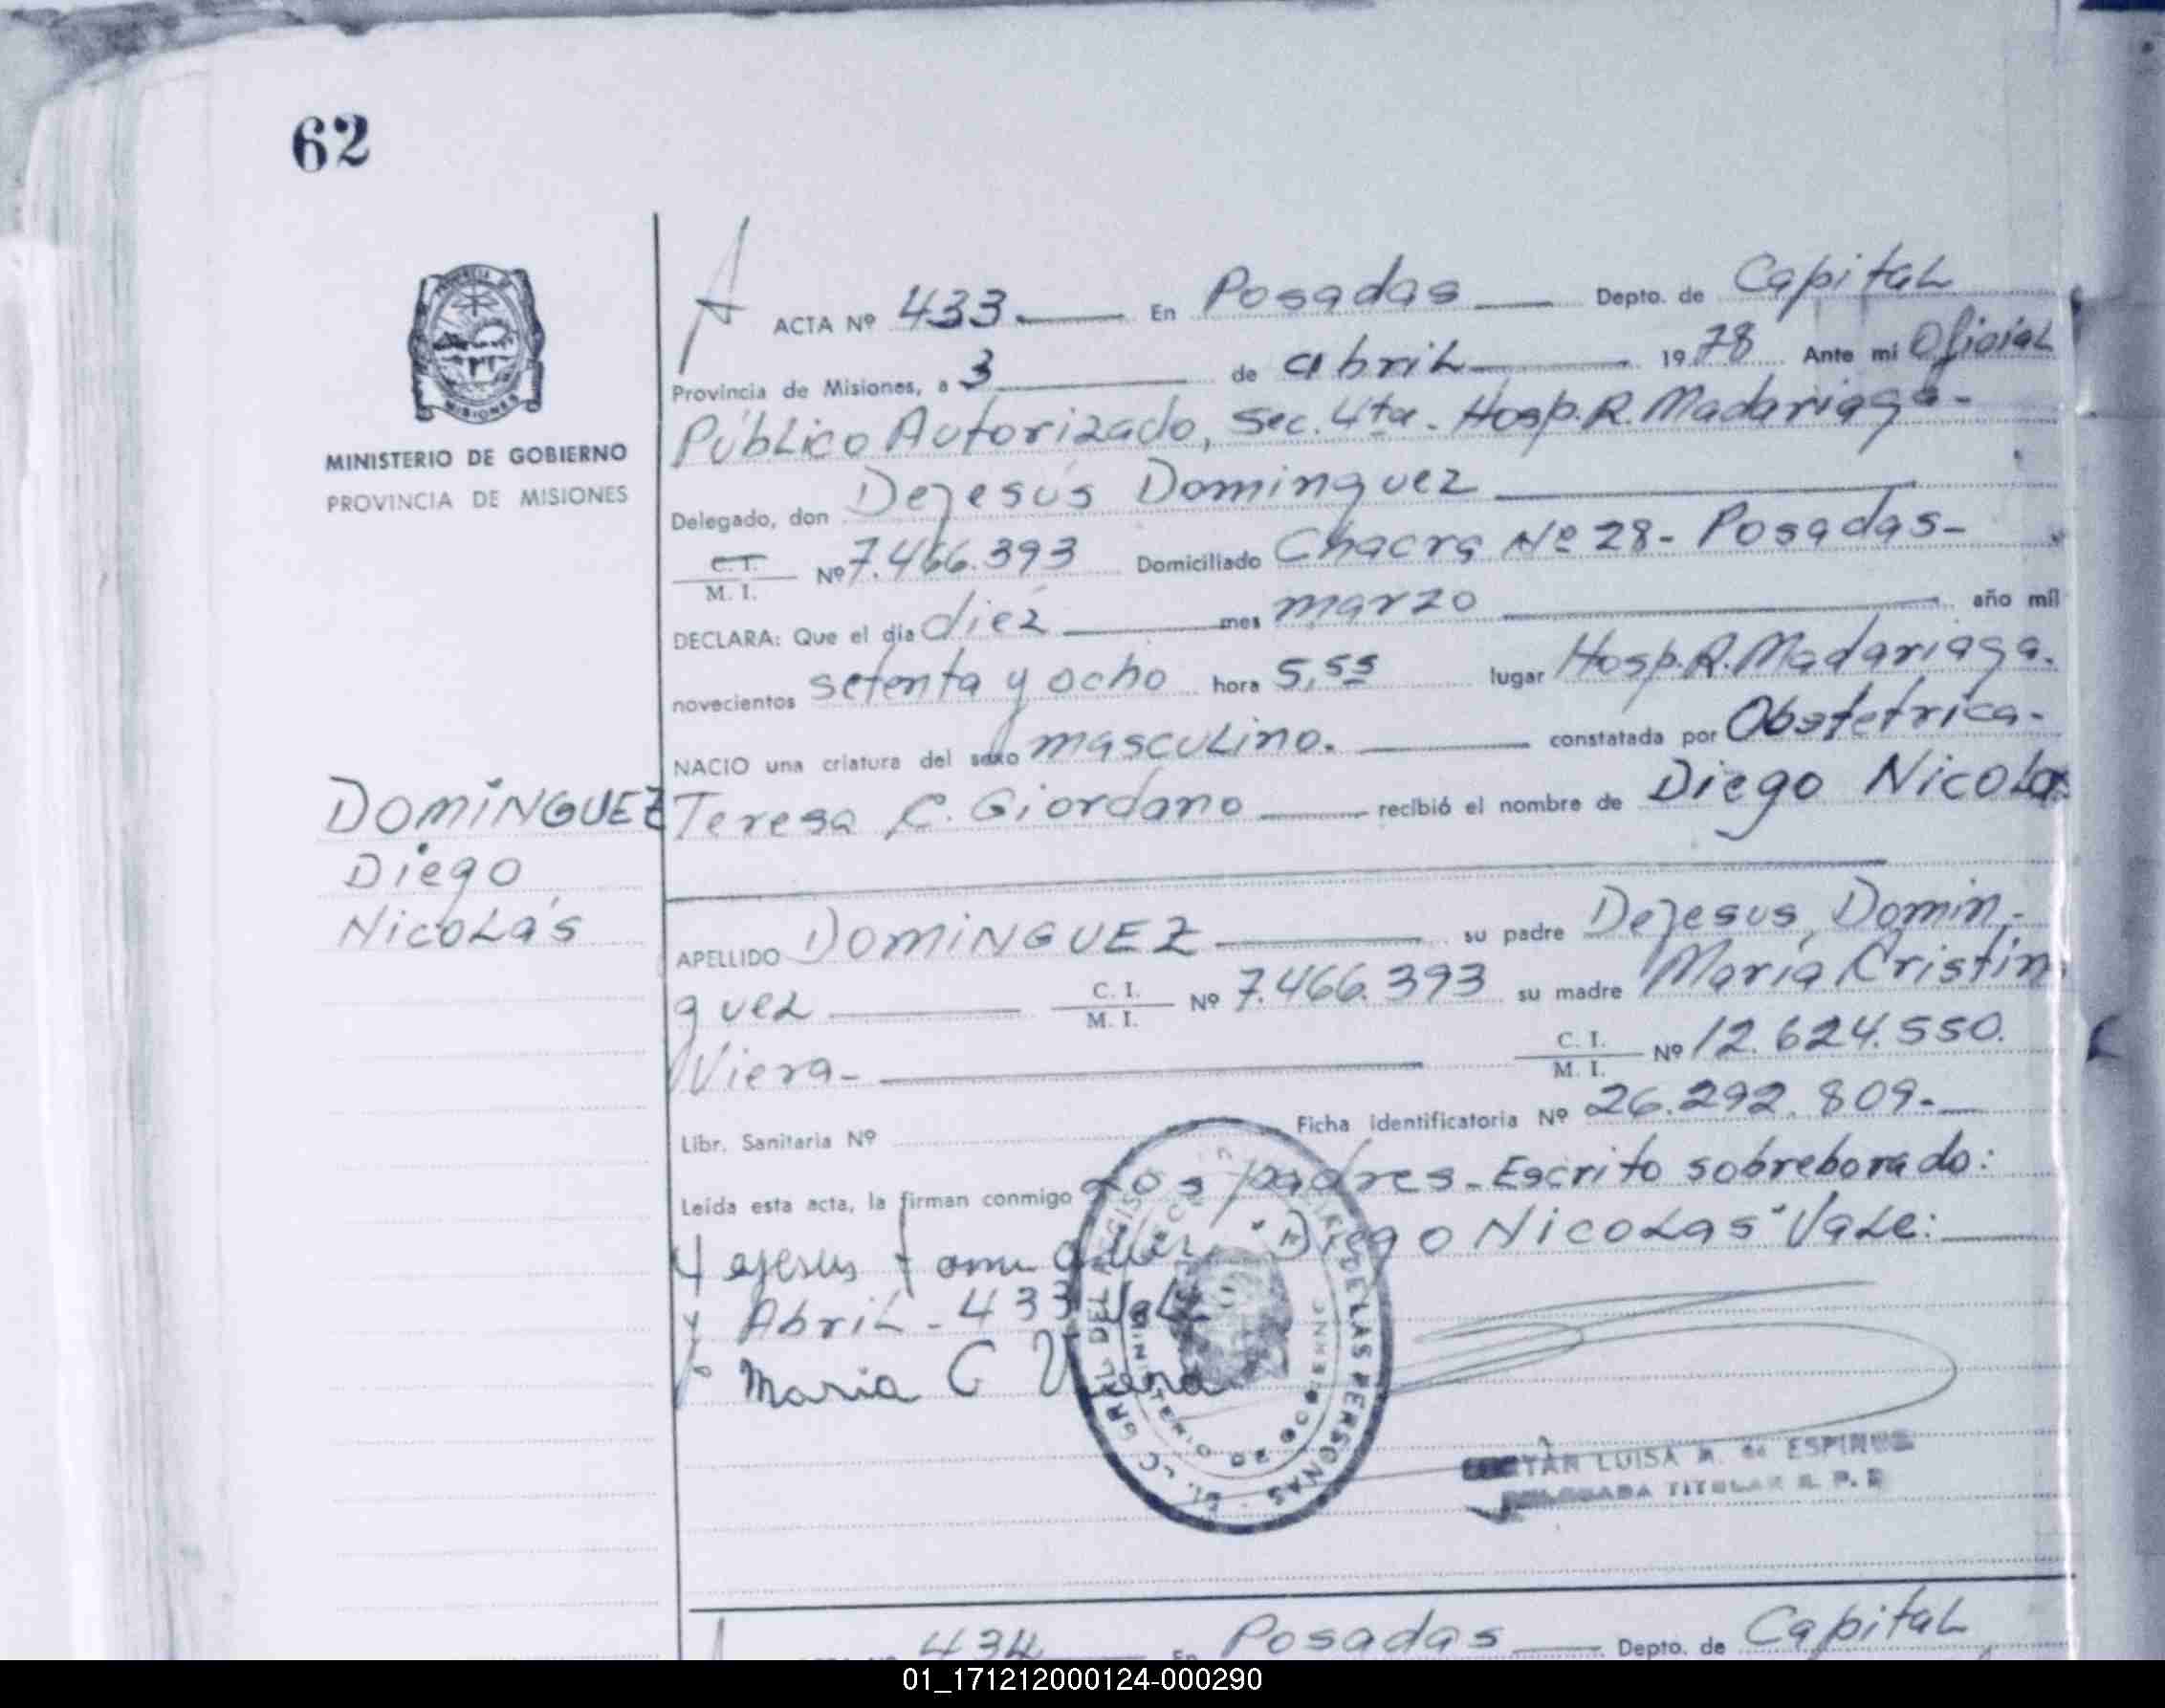 62
MISIONES
MINISTERIO DE GOBIERNO
PROVINCIA DE MISIONES
DOMINGUEZ
Diego
Nicolás
ACTA Nº 433. En Posadas Depto. de Capital
Provincia de Misiones, a 3 de abril 1978 Ante mi Oficial
Público Autorizado, Sec. 4ta. Hosp. R. Madariaga-
Delegado, don Dejesús Dominguez
C. I.
M. I. Nº 7.466.393 Domiciliado Chacra Nº 28- Posadas-
DECLARA: Que el día diez mes marzo año mil
novecientos setenta y ocho hora 5,55 lugar Hosp. R. Madariaga.
NACIO una criatura del sexo masculino. constatada por Obstetrica-
Teresa C. Giordano recibió el nombre de Diego Nicolas
APELLIDO DOMINGUEZ su padre Dejesus Domin-
guez C. I. M. I. Nº 7.466.393 su madre María Cristina
Viera- C. I. M. I. Nº 12.624.550.
Libr. Sanitaria Nº Ficha identificatoria Nº 26.292.809-
Leída esta acta, la firman conmigo los padres. Escrito sobreborado:
"Diego Nicolas" Vale:
y Abril - 433 Vale
Maria C Viera
DE LAS PERSONAS
LUISA R. de ESPINOS
TITULAR R. P.
434 En Posadas Depto. de Capital
01_171212000124-000290